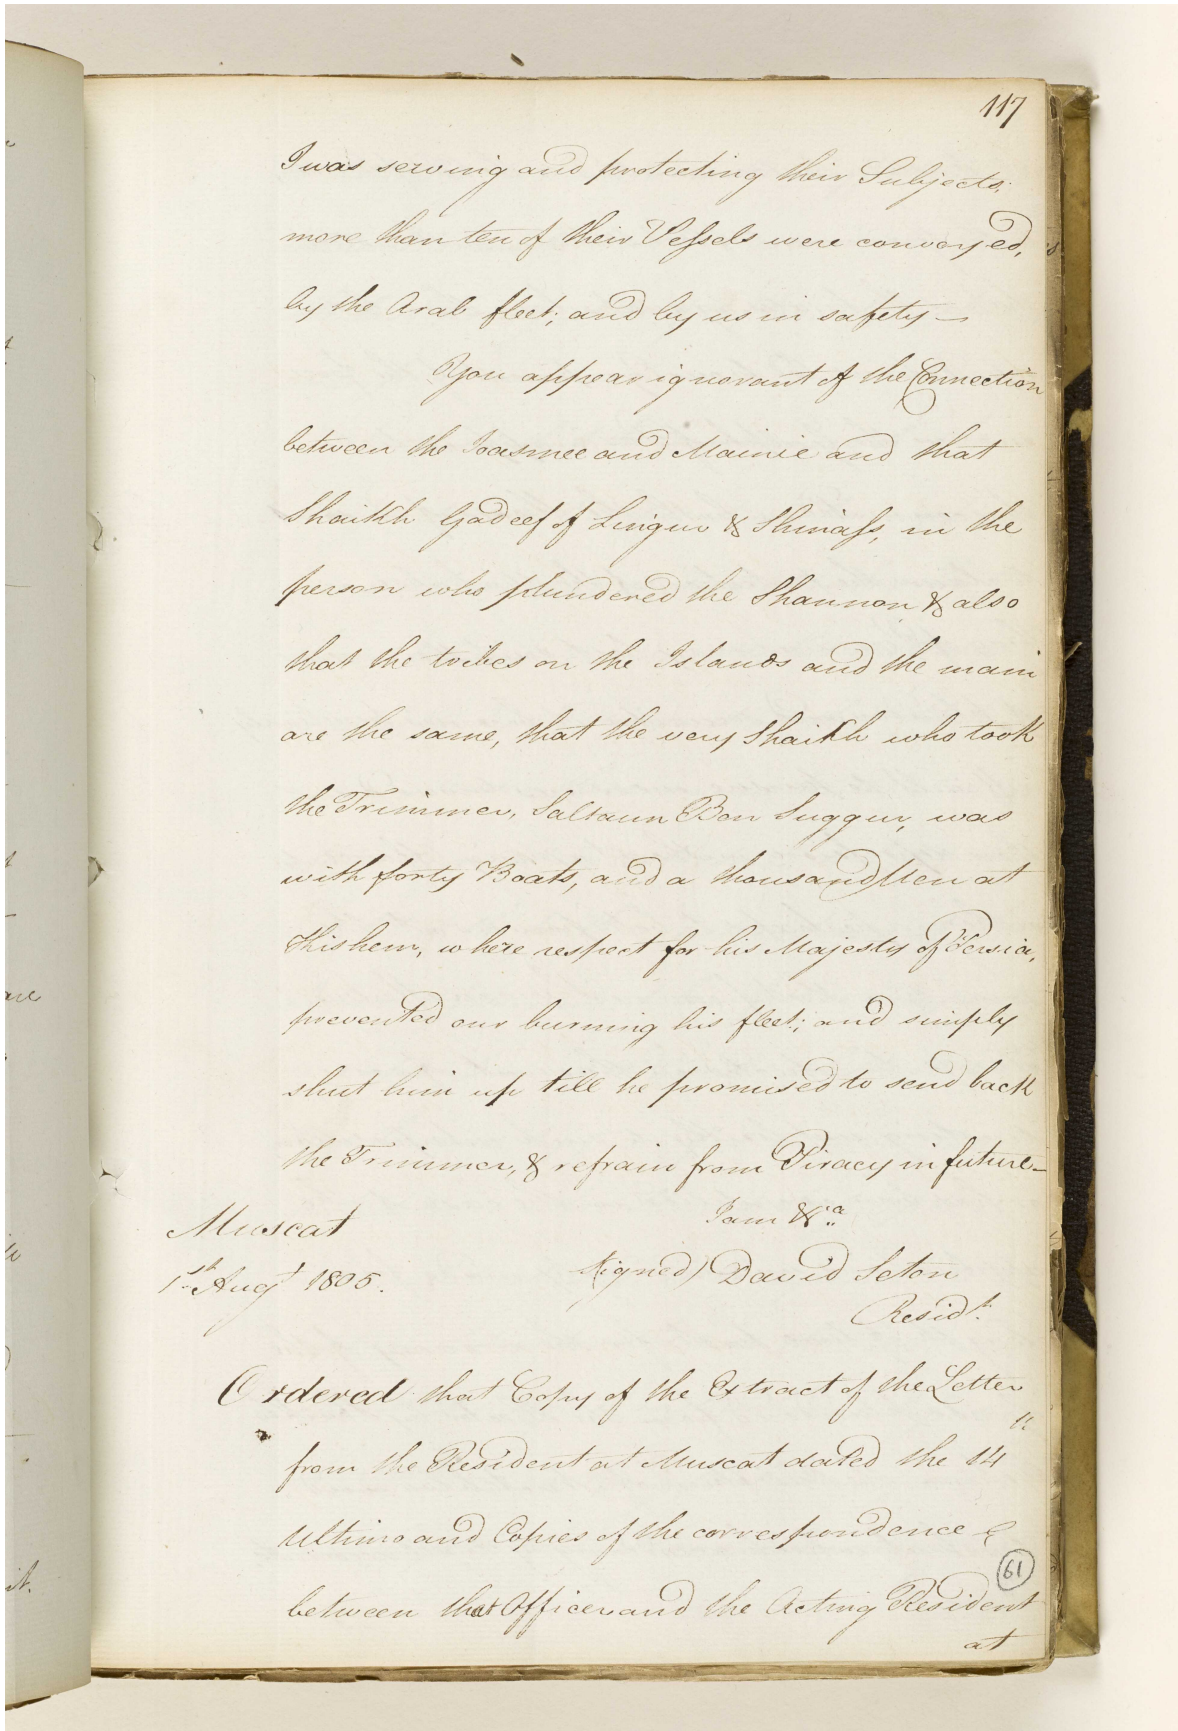 117
I was serving and protecting their Subjects;
more than ten of their Vessels were convoyed,
by the Arab fleet; and by us in safety —
You appear ignorant of the Connection
between the Joasmee and Mainie and that
Shaikh Gadeef of Lingur & Shinass, in the
person who plundered the Shannon & also
that the tribes on the Islands and the main
are the same, that the very Shaikh who took
the Trimmer, Saltaun Ben Suggur, was
with forty Boats, and a thousand Men at
Kishem, where respect for his Majesty of Persia,
prevented our burning his fleet; and simply
shut him up till he promised to send back
the Trimmer, & refrain from Piracy in future —
I am &ca
Muscat
(signed) David Seton
1st Augt 1805.
Residt.
Ordered that Copy of the Extract of the Letter
from the Resident at Muscat dated the 14th
Ultimo and Copies of the correspondence
between that Officer and the Acting Resident
61
at